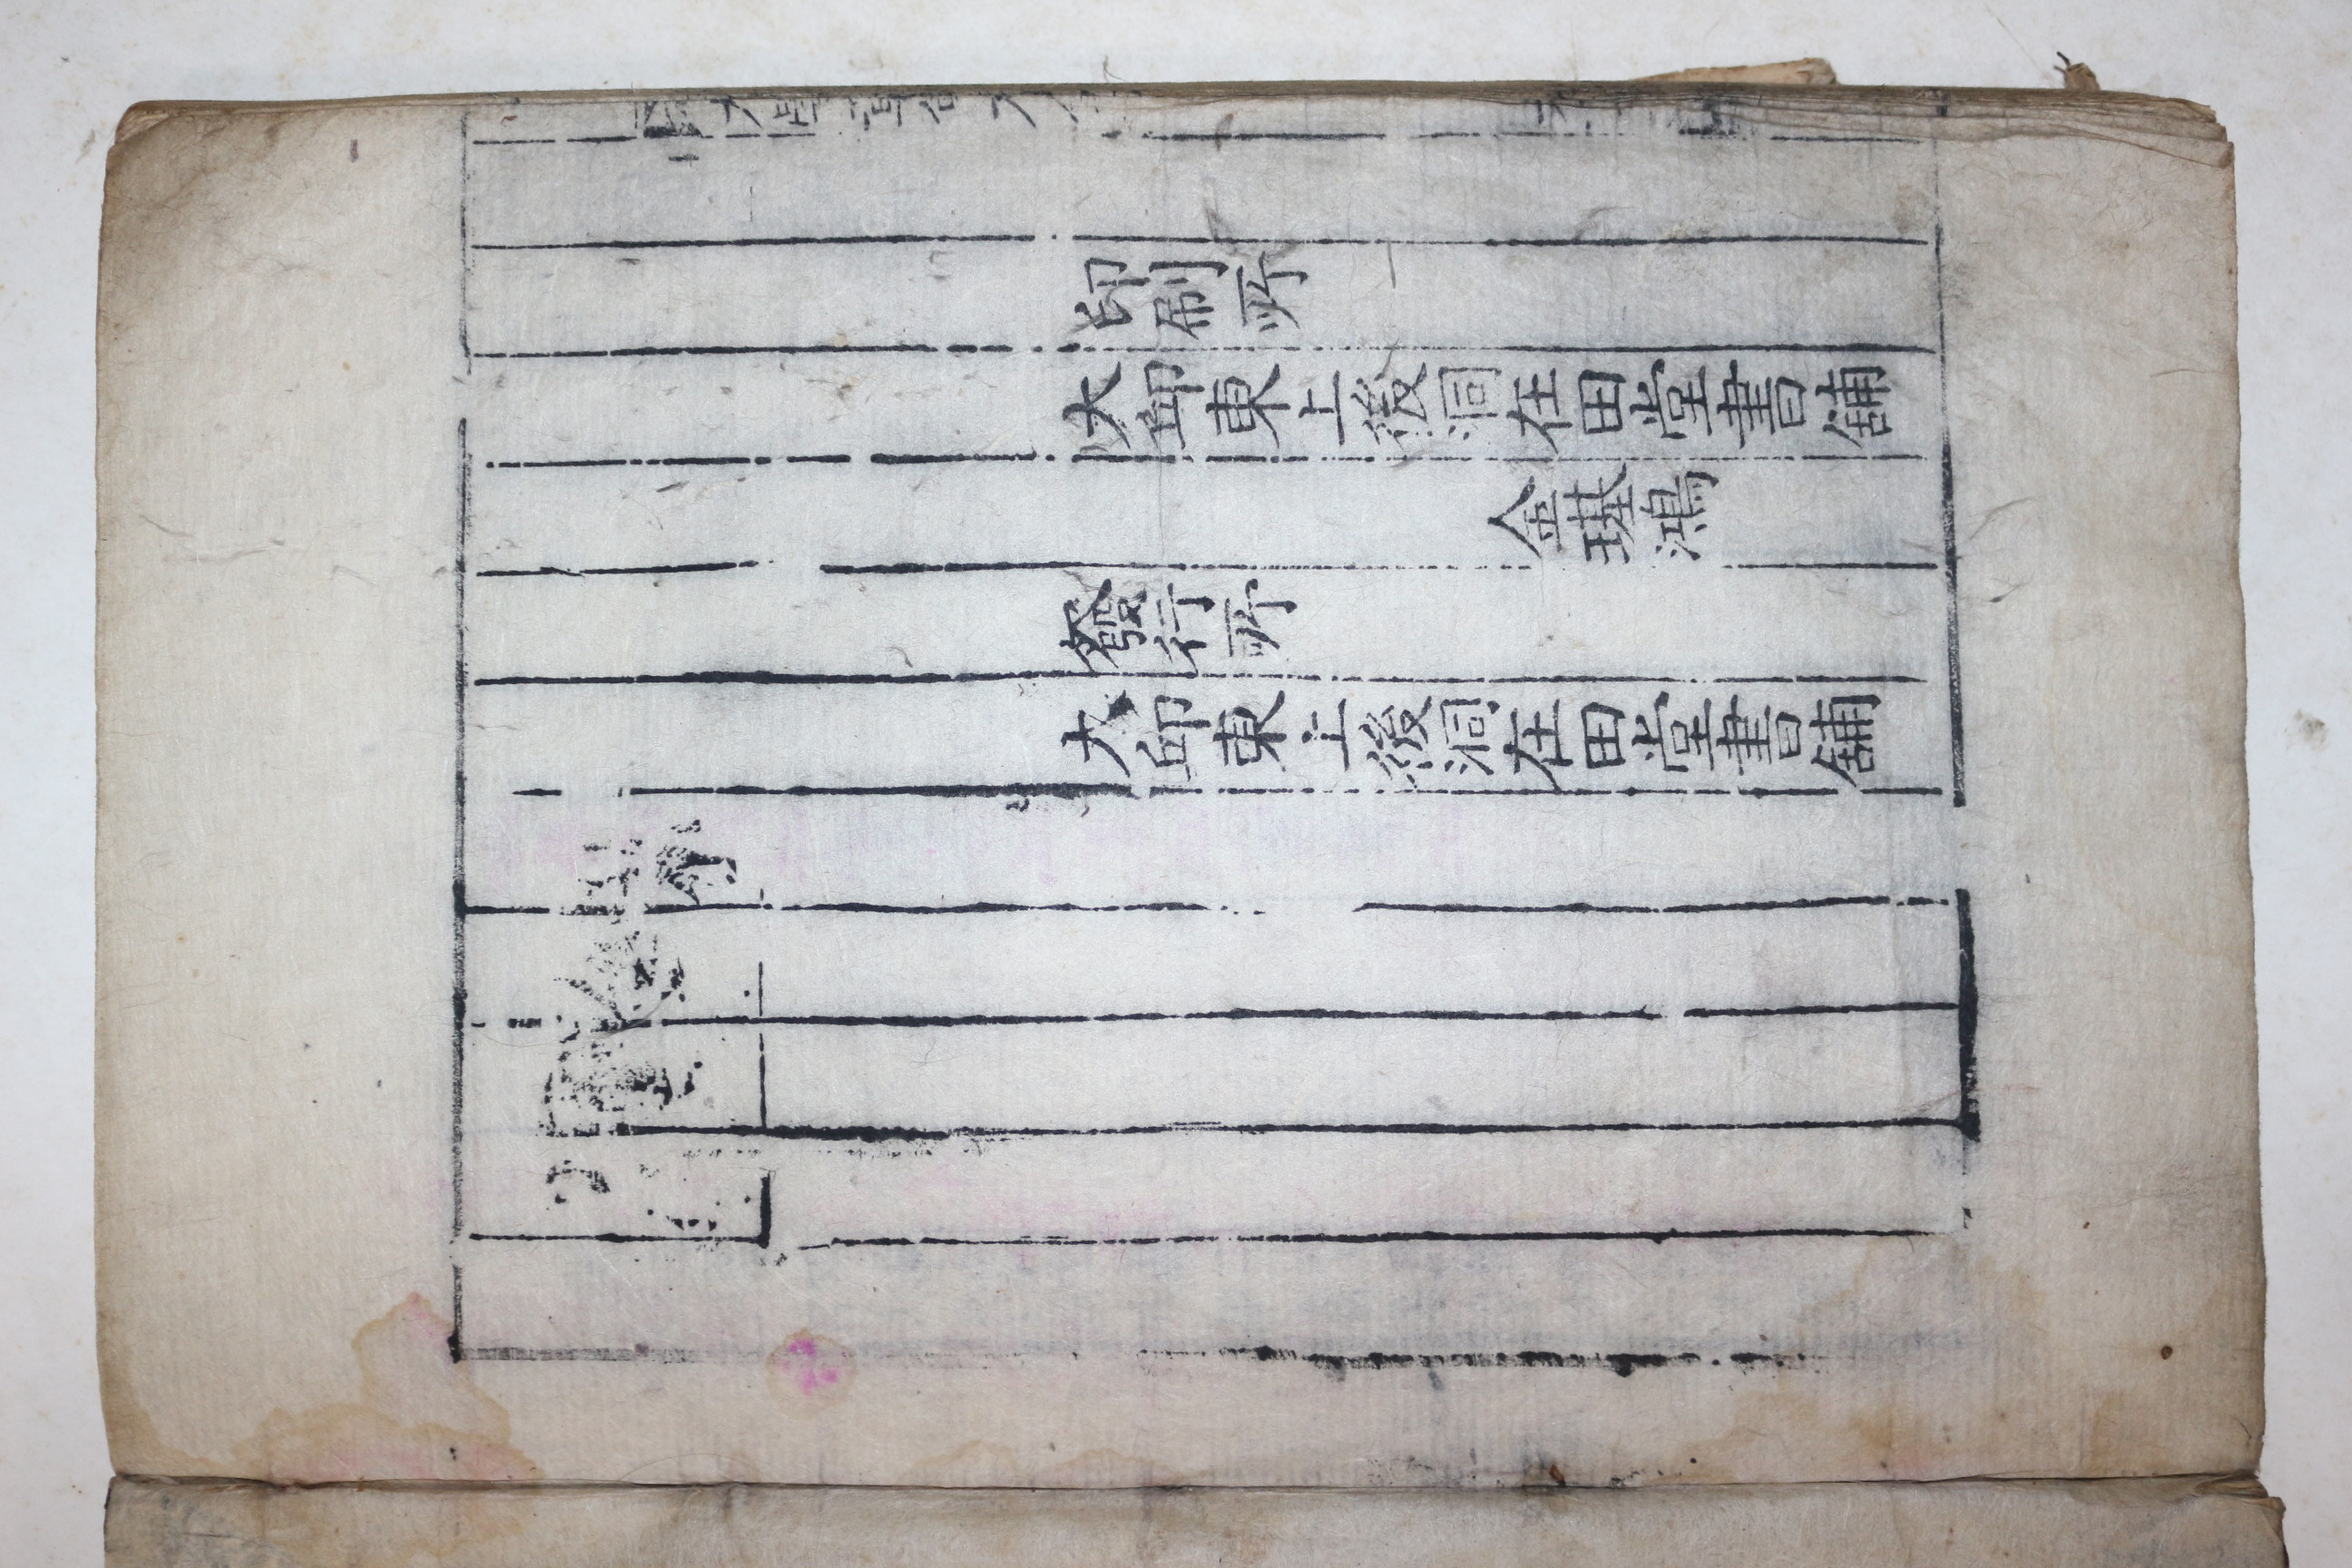 印刷所
大邱東上後洞在田堂書舖
金璂鴻
發行所
大邱東上後洞在田堂書舖